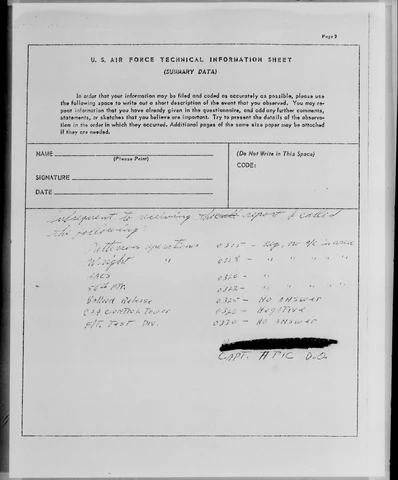 Page 9
U. S. AIR FORCE TECHNICAL INFORMATION SHEET
(SUMMARY DATA)
In order that your information may be filed and coded as accurately as possible, please use
the following space to write out a short description of the event that you observed. You may re-
peat information that you have already given in the questionnaire, and add any further comments,
statements, or sketches that you believe are important. Try to present the details of the observa-
tion in the order in which they occurred. Additional pages of the same size paper may be attached
if they are needed.
NAME
(Please Print)
SIGNATURE
DATE
(Do Not Write in This Space)
CODE:
Subsequent to receiving report I called
the following:
Patterson operations 0315 - Neg, no A/C in area
Wright " 0318 - " " " "
AACS 0320 - "
0322 - " " " "
Balloon Release 0325 - NO ANSWER
CAA CONTROL TOWER - Negative
FLT. TEST DIV. 0330 - NO ANSWER
CAPT. ATIC D.O.